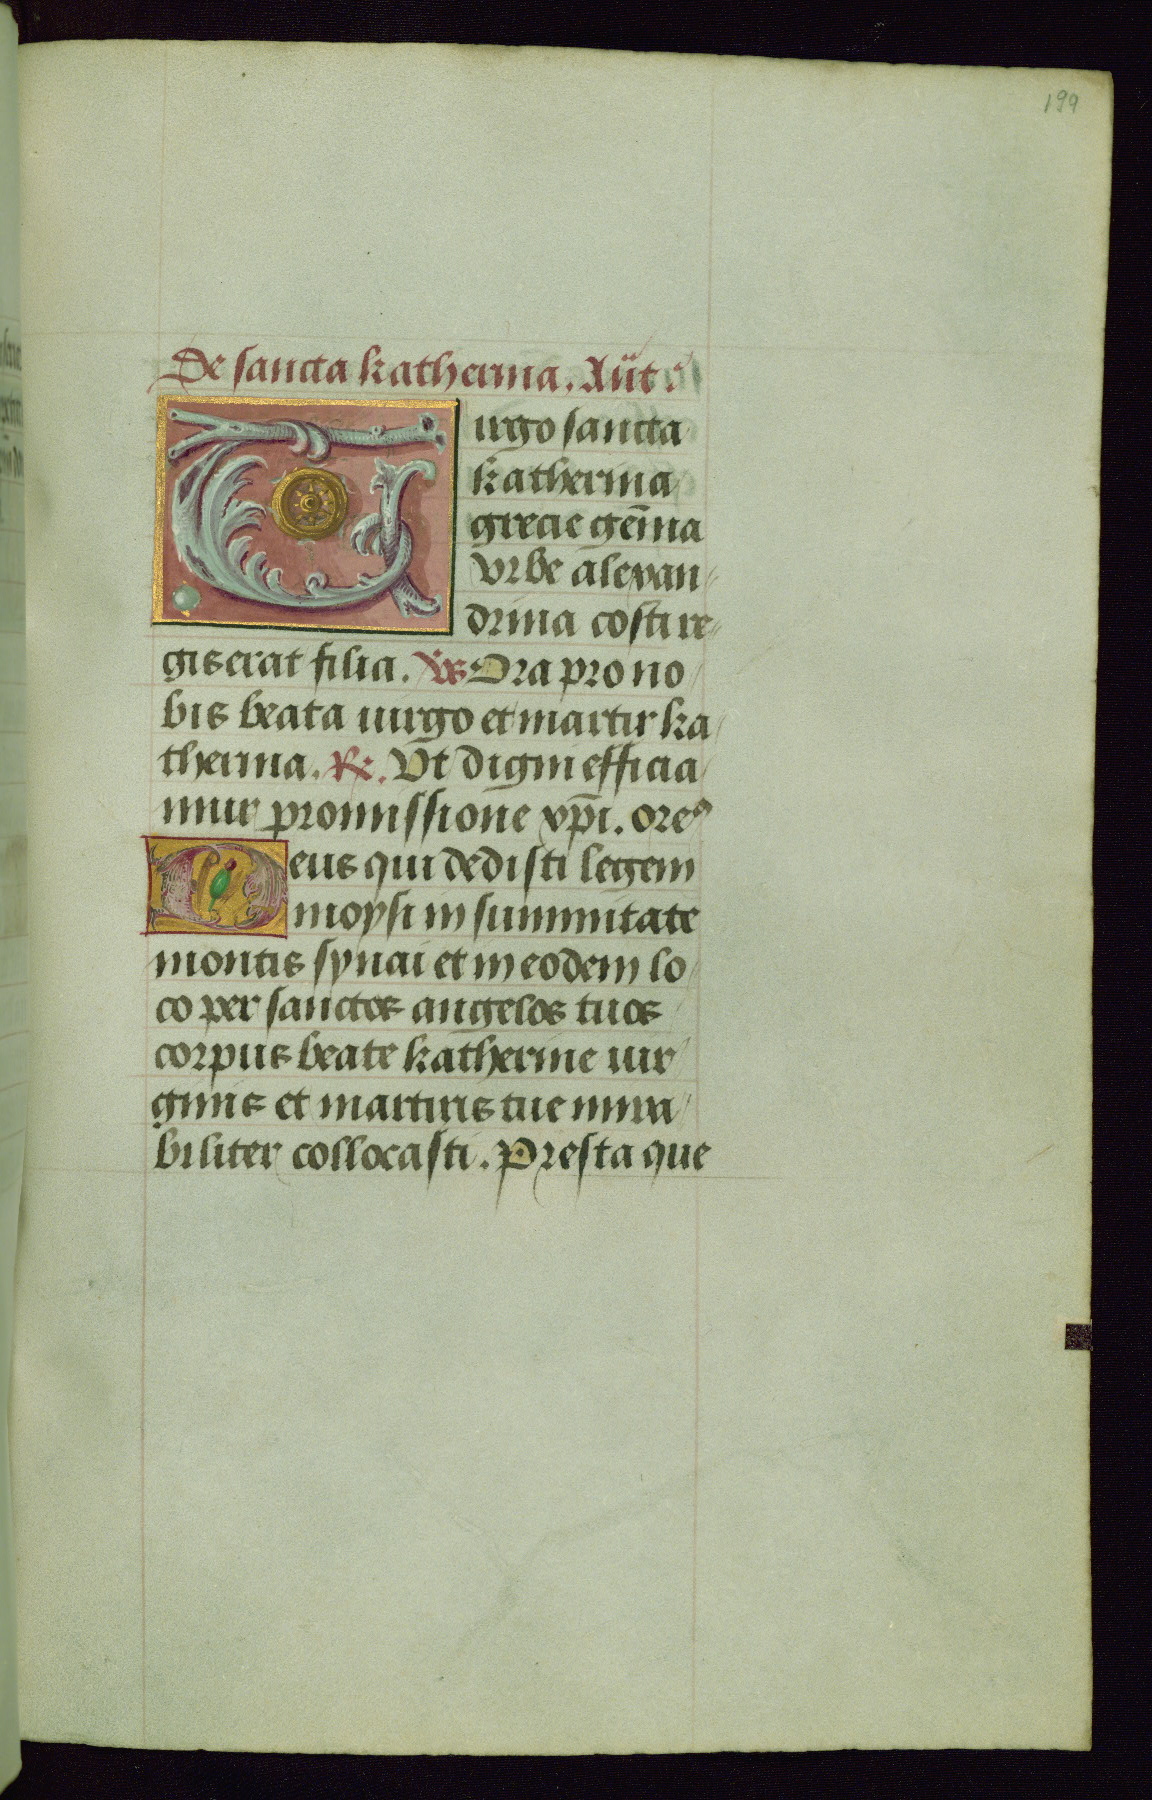 199
De sancta katherina. Ant̄.
Uirgo sancta
katherina
grecie gēma
vrbe alexan
drina costi re
gis erat filia. V̄s Ora pro no
bis beata uirgo et martir ka
therina. R̄. Vt digni efficia
mur promissione xp̄i. ore͂o
Deus qui dedisti legem
moysi in summitate
montis synai et in eodem lo
co per sanctos angelos tuos
corpus beate katherine uir
ginis et martiris tue mira
biliter collocasti. Presta que